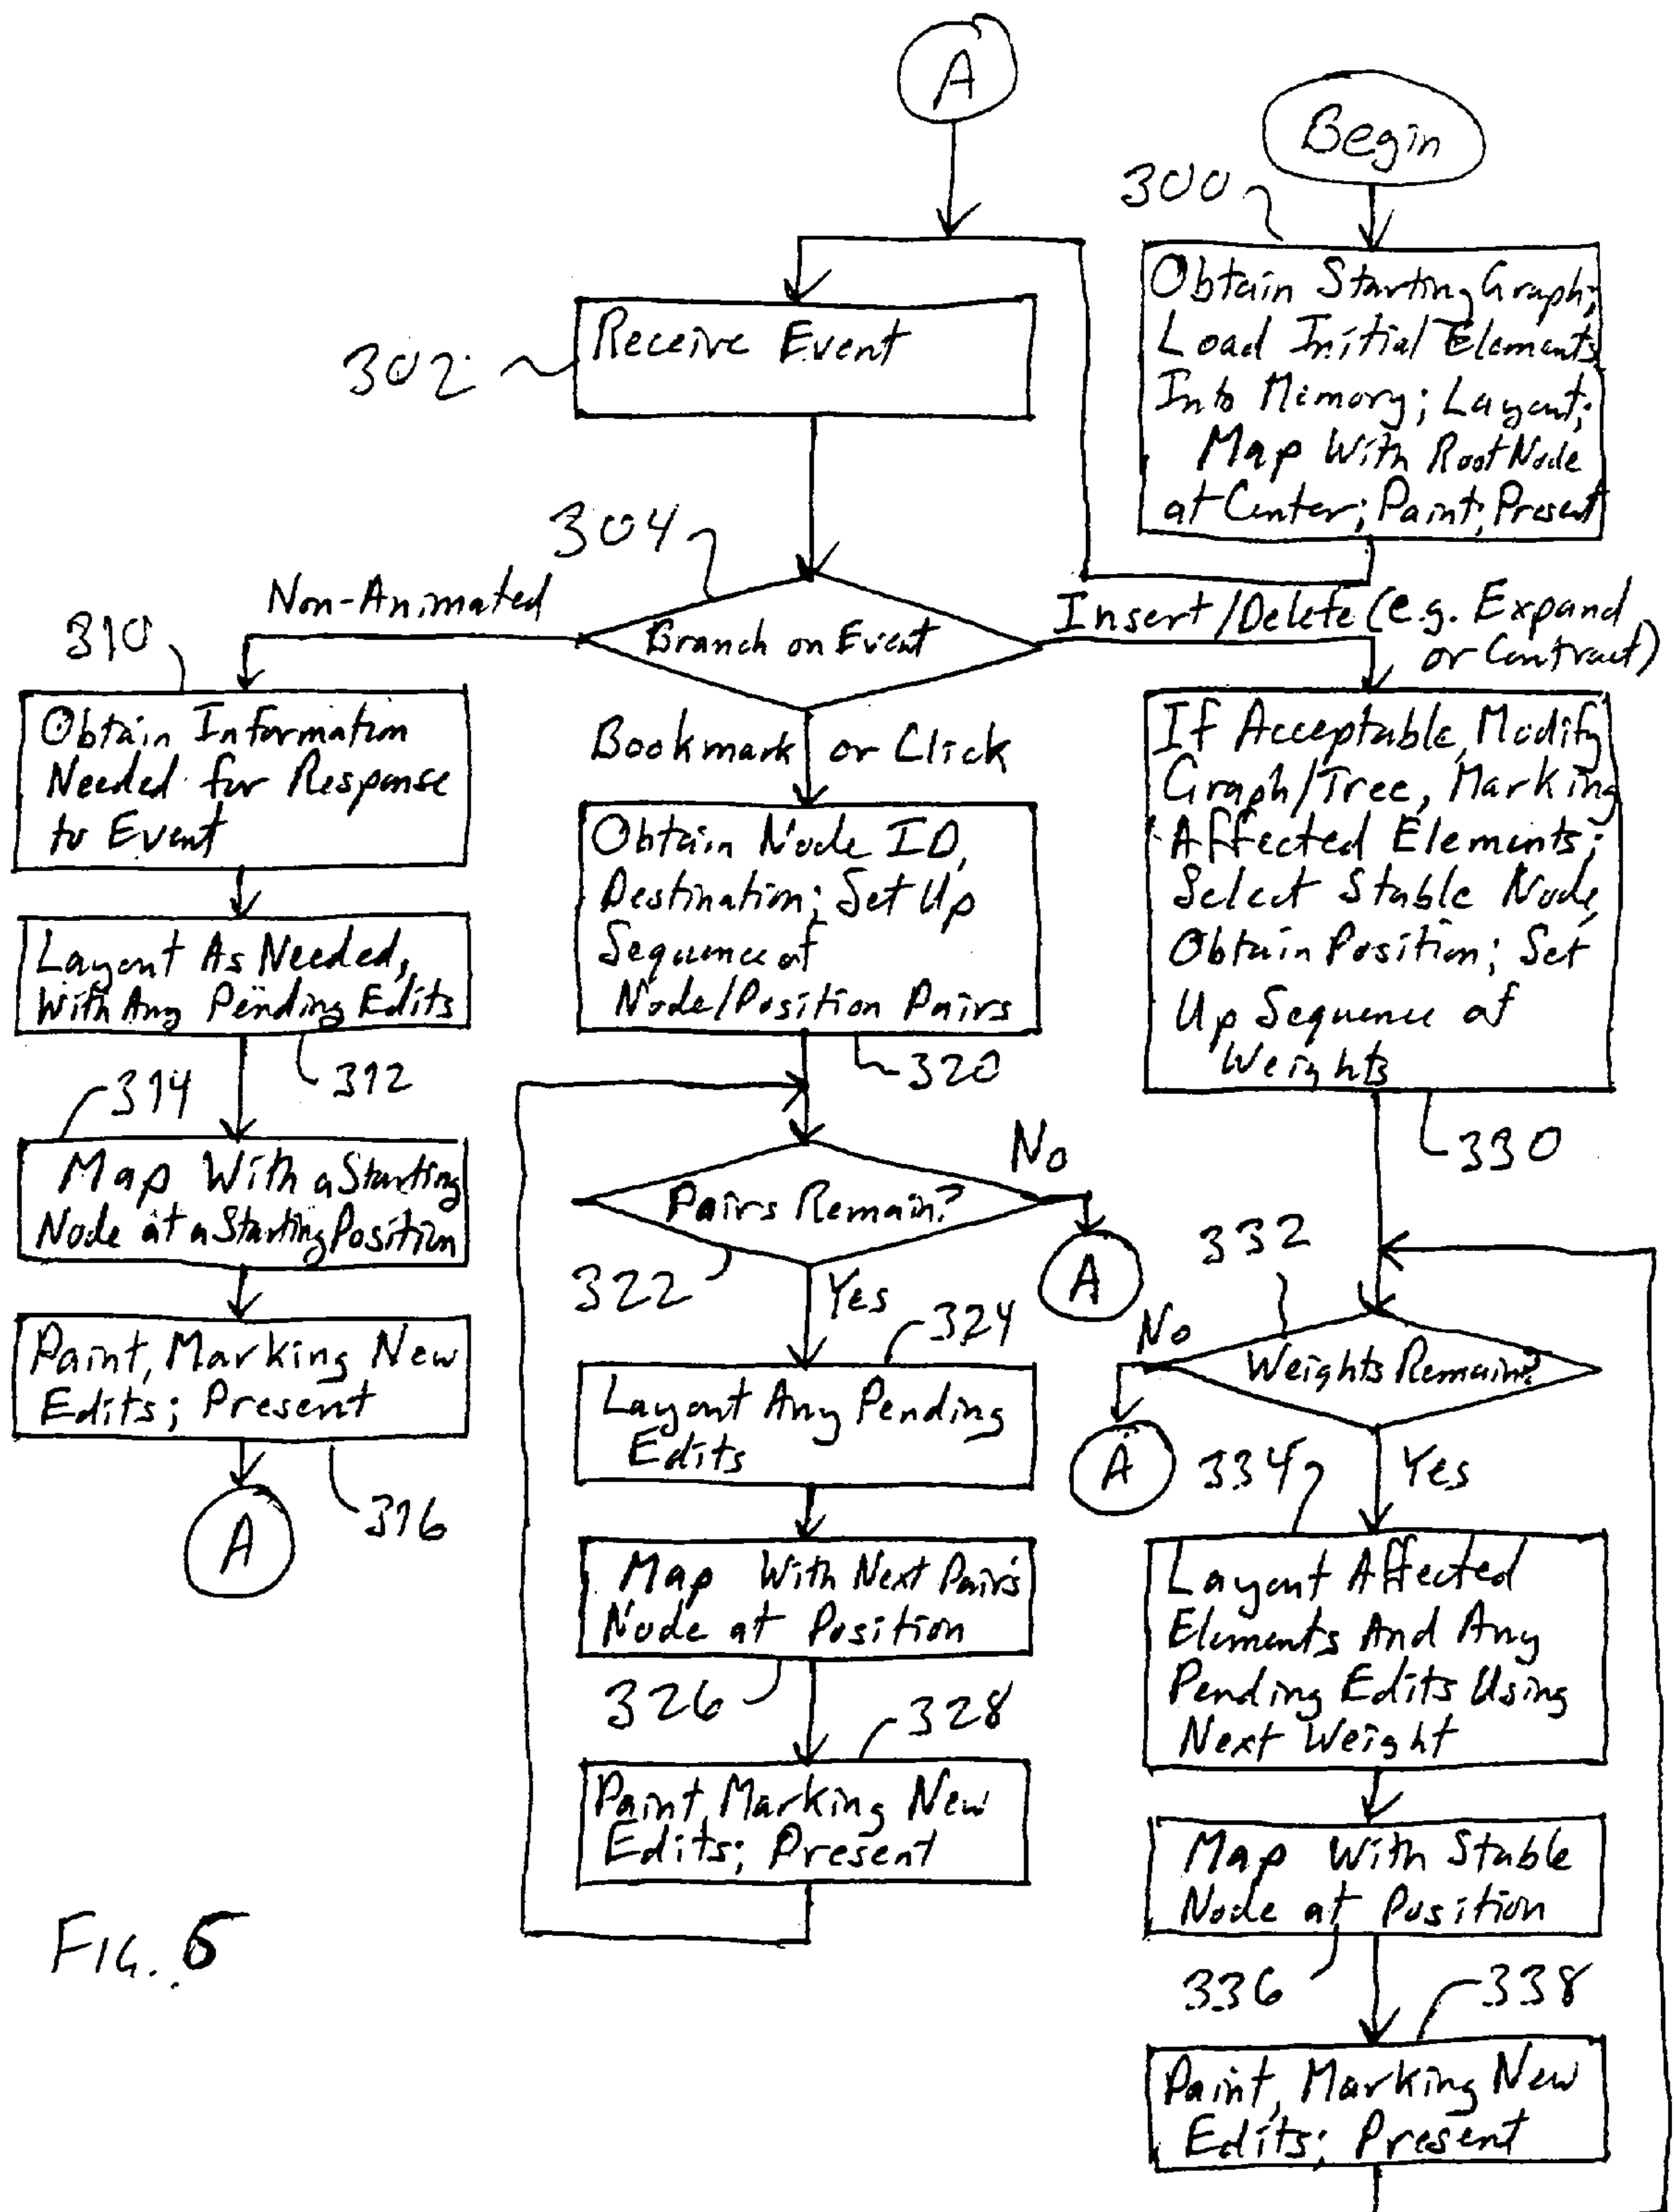 A
Begin
300
Obtain Starting Graph;
Load Initial Elements
Into Memory; Layout;
Map With Root Node
at Center; Paint; Present
302
Receive Event
304
Branch on Event
Non-Animated
310
Obtain Information
Needed for Response
to Event
Layout As Needed,
With Any Pending Edits
312
314
Map With a Starting
Node at a Starting Position
Paint, Marking New
Edits; Present
316
A
Bookmark or Click
Obtain Node ID,
Destination; Set Up
Sequence of
Node/Position Pairs
320
Pairs Remain?
No
A
322
Yes
324
Layout Any Pending
Edits
Map With Next Pair's
Node at Position
326
328
Paint, Marking New
Edits; Present
Insert/Delete (e.g. Expand
or Contract)
If Acceptable, Modify
Graph/Tree, Marking
Affected Elements;
Select Stable Node,
Obtain Position; Set
Up Sequence of
Weights
330
332
Weights Remain?
No
A
334
Yes
Layout Affected
Elements And Any
Pending Edits Using
Next Weight
Map With Stable
Node at Position
336
338
Paint, Marking New
Edits; Present
FIG. 5